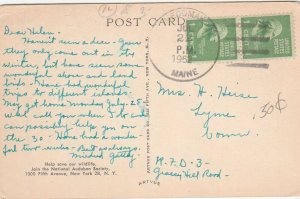 POST CARD
Dear Helen,
Haven't seen a deer. Guess
they only come out in the
winter, but have seen some
wonderful shore and land
birds. Have had wonderful
trips to different islands.
May get home Monday July 28-
will call you when I do and
can possibly help you on
the 30 - Have had a wonder-
ful two weeks - Best as always.
Mildred
Help save our wildlife.
Join the National Audubon Society.
1000 Fifth Avenue, New York 28, N. Y.
ARTVUE
ARTVUE POST CARD CO.
P.M.
MAINE
Mrs. H. Heise
Lyme
Conn.
R.F.D-3-
Grassy Hill Road-
30¢